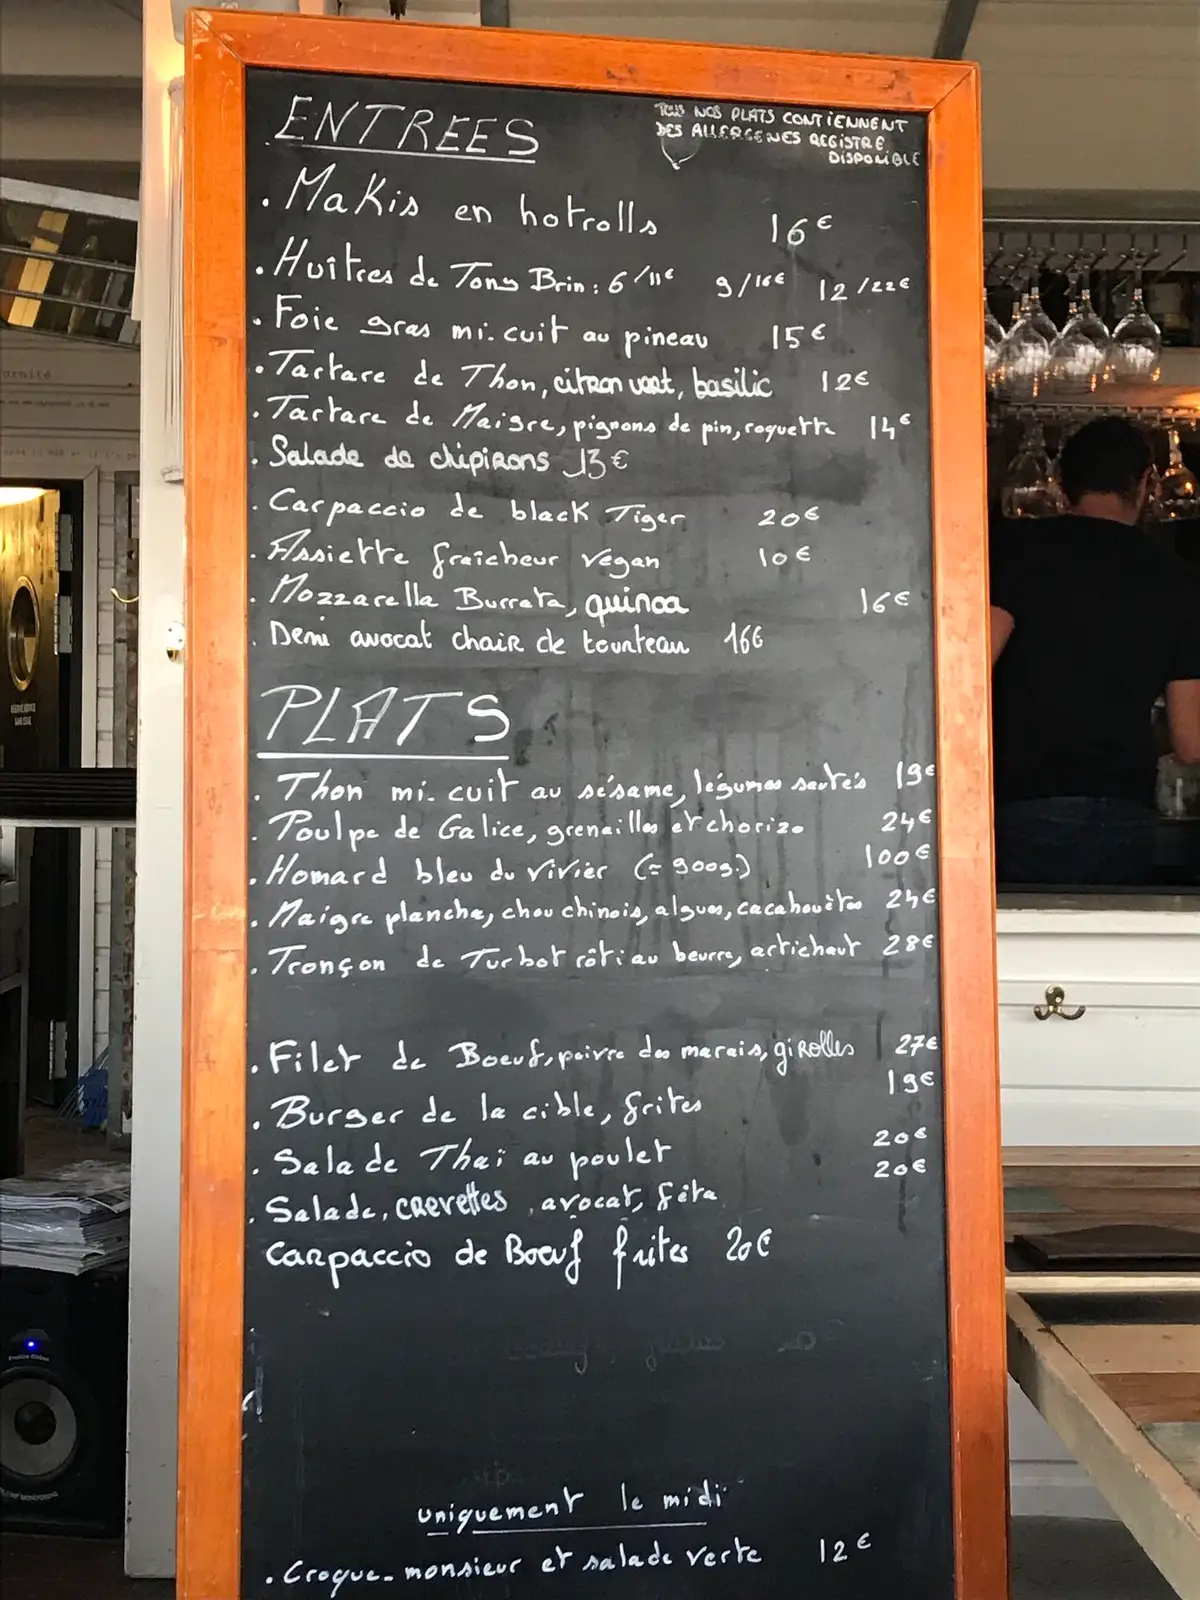 ENTREES
TOUS NOS PLATS CONTIENNENT
DES ALLERGENES REGISTRE
DISPONIBLE
. Makis en hotrolls 16€
. Huîtres de Tony Brin : 6/11€ 9/16€ 12/22€
. Foie gras mi.cuit au pineau 15€
. Tartare de Thon, citron vert, basilic 12€
. Tartare de Maigre, pignons de pin, roquette 14€
. Salade de chipirons 13€
. Carpaccio de black Tiger 20€
. Assiette fraîcheur végan 10€
. Mozzarella Burrata, quinoa 16€
. Demi avocat chair de tourteau 16€
PLATS
. Thon mi-cuit au sésame, légumes sautés 19€
. Poulpe de Galice, grenailles et chorizo 24€
. Homard bleu du vivier (= 900g.) 100€
. Maigre plancha, chou chinois, algues, cacahouètes 24€
. Tronçon de Turbot rôti au beurre, artichaut 28€
. Filet de Boeuf, poivre des marais, girolles 27€
. Burger de la cible, frites 19€
. Salade Thaï au poulet 20€
. Salade, crevettes, avocat, féta 20€
Carpaccio de Boeuf frites 20€
uniquement le midi
. Croque-monsieur et salade verte 12€